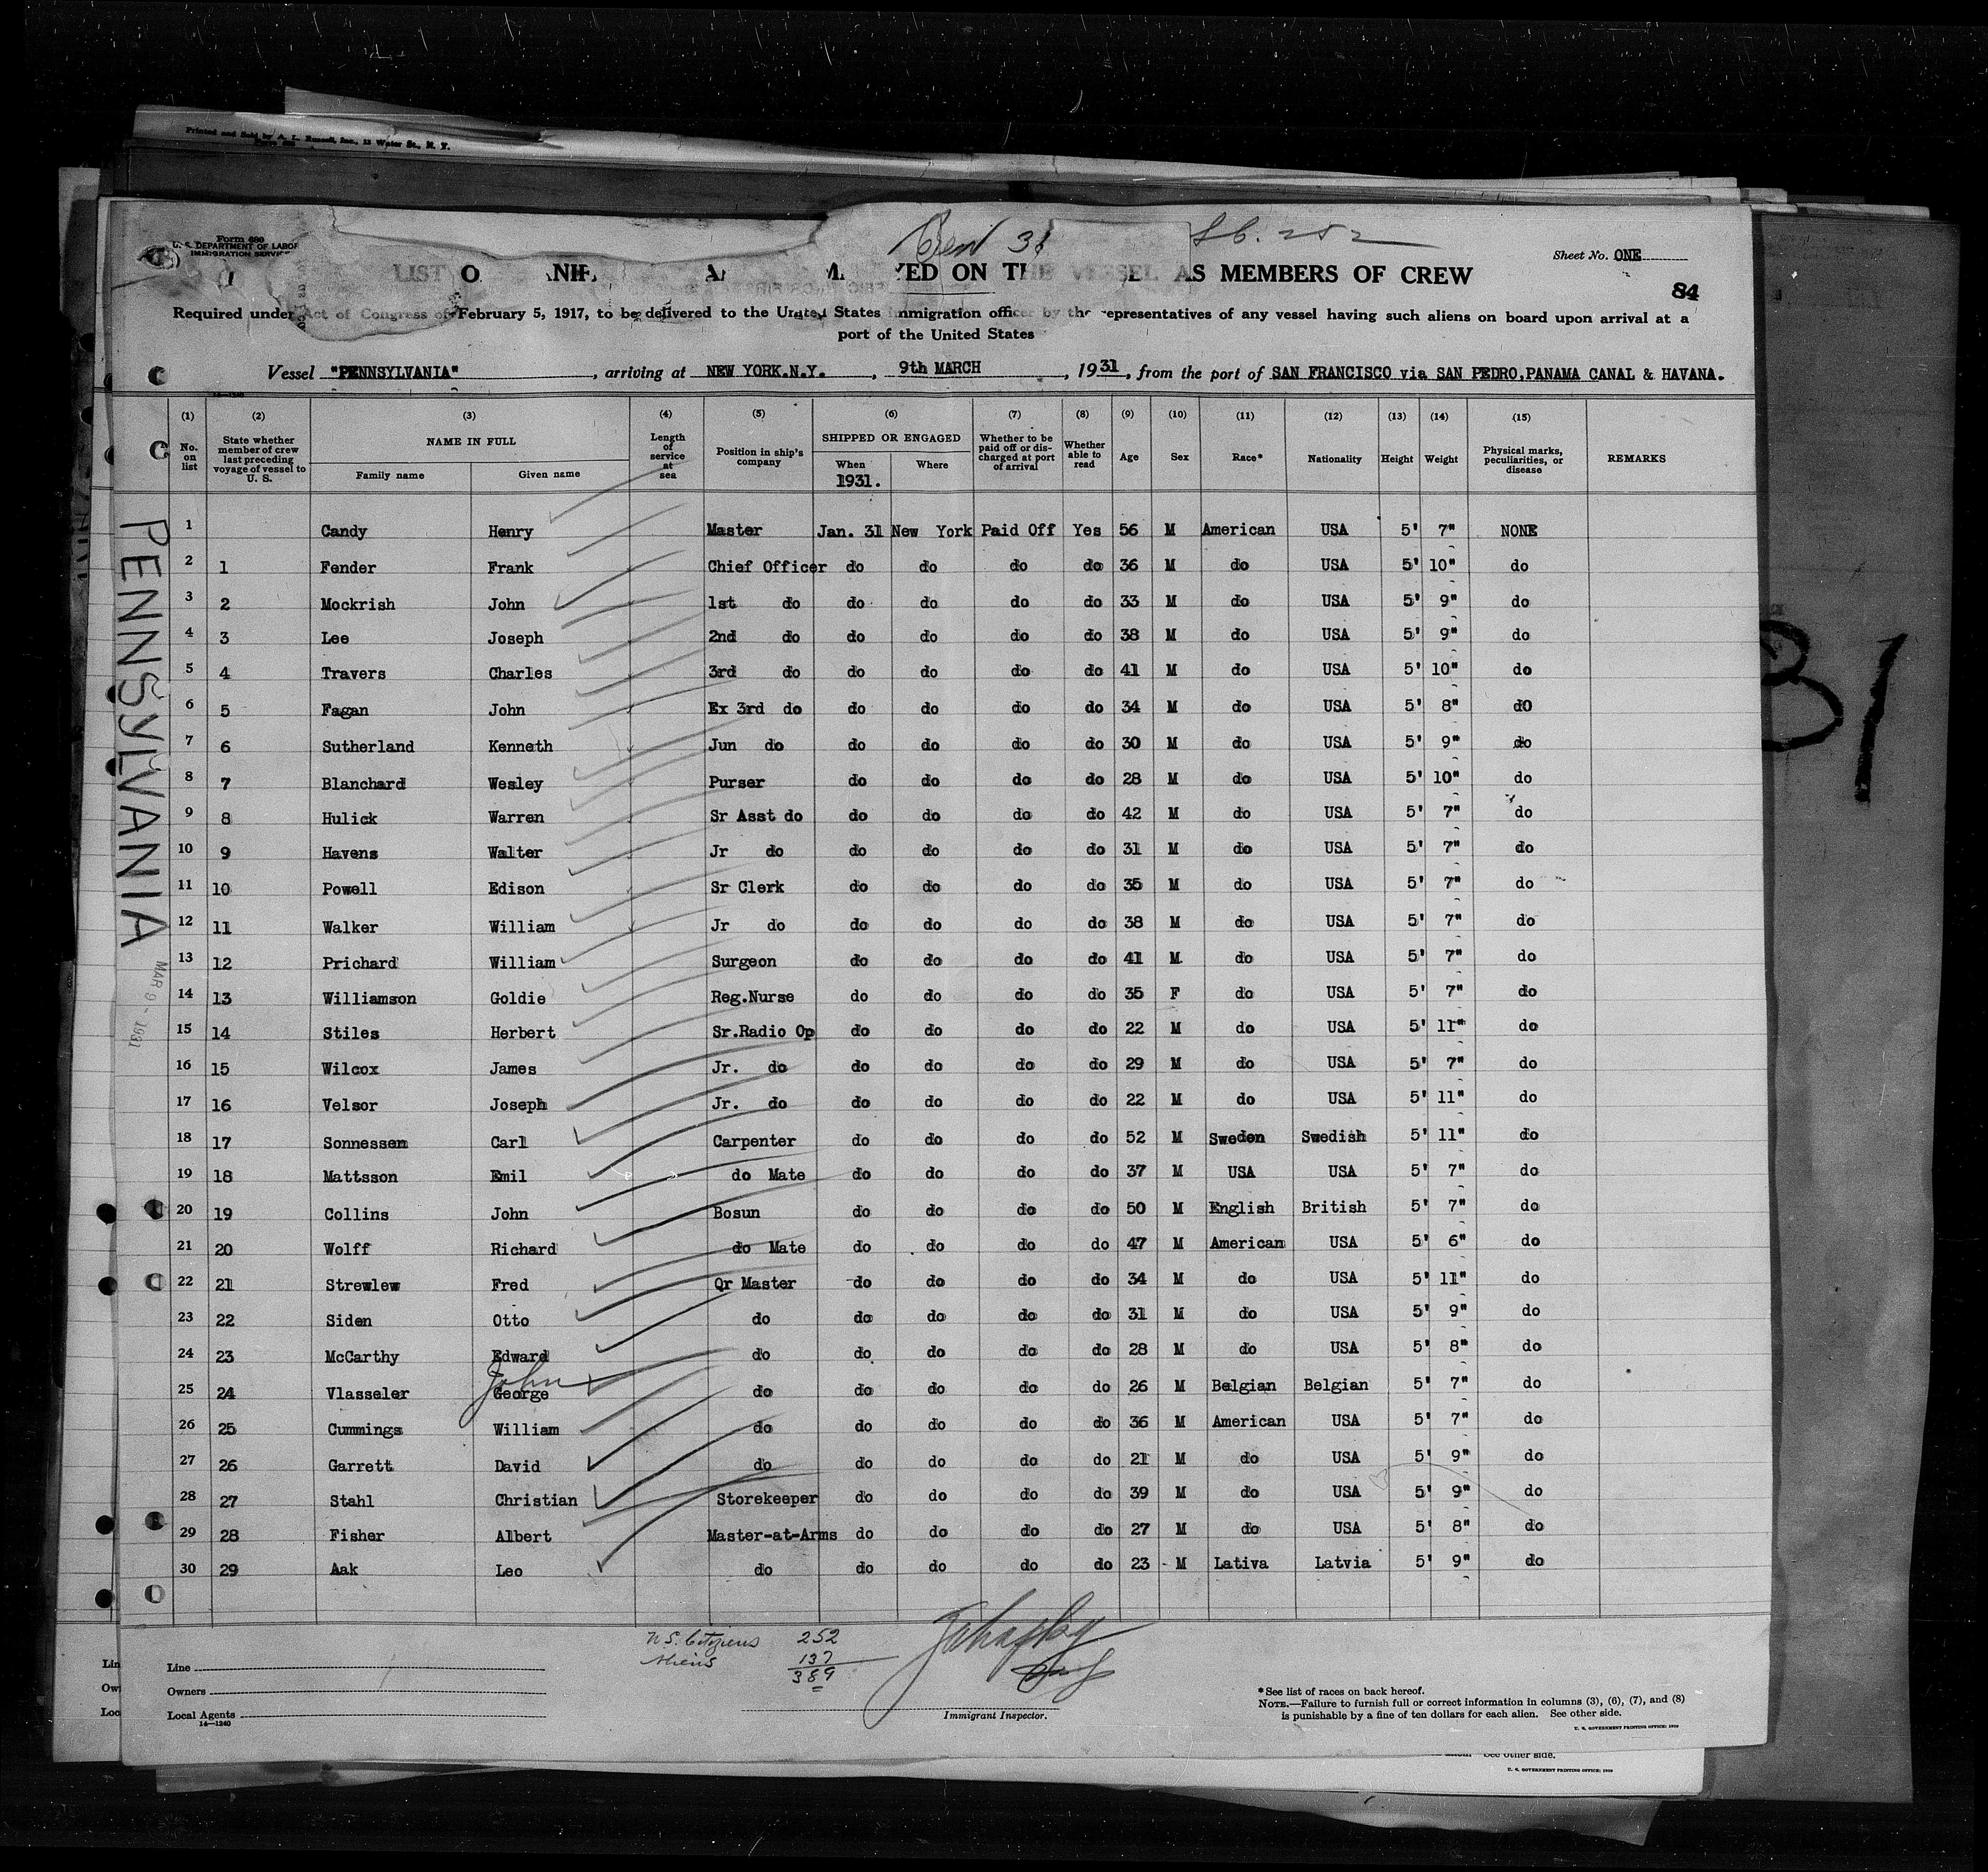 Printed and Sold by A. L. Russell, Inc., 13 Water St., N. Y.
Form 680
U. S. DEPARTMENT OF LABOR
IMMIGRATION SERVICE
Crew
Sheet No. ONE
LIST O NIF A M YED ON THE VESSEL AS MEMBERS OF CREW
84
Required under Act of Congress of February 5, 1917, to be delivered to the United States immigration officer by the representatives of any vessel having such aliens on board upon arrival at a
port of the United States
Vessel "PENNSYLVANIA", arriving at NEW YORK.N.Y., 9th MARCH, 1931, from the port of SAN FRANCISCO via SAN PEDRO,PANAMA CANAL & HAVANA.
14—1240
(1) (2) (3) (4) (5) (6) (7) (8) (9) (10) (11) (12) (13) (14) (15)
No. on list | State whether member of crew last preceding voyage of vessel to U. S. | NAME IN FULL | Length of service at sea | Position in ship's company | SHIPPED OR ENGAGED | Whether to be paid off or discharged at port of arrival | Whether able to read | Age | Sex | Race* | Nationality | Height | Weight | Physical marks, peculiarities, or disease | REMARKS
Family name | Given name | When 1931. | Where
1 Candy Henry Master Jan. 31 New York Paid Off Yes 56 M American USA 5' 7" NONE
2 1 Fender Frank Chief Officer do do do do 36 M do USA 5' 10" do
3 2 Mockrish John 1st do do do do do 33 M do USA 5' 9" do
4 3 Lee Joseph 2nd do do do do do 38 M do USA 5' 9" do
5 4 Travers Charles 3rd do do do do do 41 M do USA 5' 10" do
6 5 Fagan John Ex 3rd do do do do do 34 M do USA 5' 8" dO
7 6 Sutherland Kenneth Jun do do do do do 30 M do USA 5' 9" do
8 7 Blanchard Wesley Purser do do do do 28 M do USA 5' 10" do
9 8 Hulick Warren Sr Asst do do do do do 42 M do USA 5' 7" do
10 9 Havens Walter Jr do do do do do 31 M do USA 5' 7" do
11 10 Powell Edison Sr Clerk do do do do 35 M do USA 5' 7" do
12 11 Walker William Jr do do do do do 38 M do USA 5' 7" do
13 12 Prichard William Surgeon do do do do 41 M do USA 5' 7" do
14 13 Williamson Goldie Reg.Nurse do do do do 35 F do USA 5' 7" do
15 14 Stiles Herbert Sr.Radio Op do do do do 22 M do USA 5' 11" do
16 15 Wilcox James Jr. do do do do do 29 M do USA 5' 7" do
17 16 Velsor Joseph Jr. do do do do do 22 M do USA 5' 11" do
18 17 Sonnessen Carl Carpenter do do do do 52 M Sweden Swedish 5' 11" do
19 18 Mattsson Emil do Mate do do do do 37 M USA USA 5' 7" do
20 19 Collins John Bosun do do do do 50 M English British 5' 7" do
21 20 Wolff Richard do Mate do do do do 47 M American USA 5' 6" do
22 21 Strewlew Fred Qr Master do do do do 34 M do USA 5' 11" do
23 22 Siden Otto do do do do do 31 M do USA 5' 9" do
24 23 McCarthy Edward do do do do do 28 M do USA 5' 8" do
John
25 24 Vlasseler George do do do do do 26 M Belgian Belgian 5' 7" do
26 25 Cummings William do do do do do 36 M American USA 5' 7" do
27 26 Garrett David do do do do do 21 M do USA 5' 9" do
28 27 Stahl Christian Storekeeper do do do do 39 M do USA 5' 9" do
29 28 Fisher Albert Master-at-Arms do do do do 27 M do USA 5' 8" do
30 29 Aak Leo do do do do do 23 M Lativa Latvia 5' 9" do
PENNSYLVANIA
MAR 9 - 1931
31
U.S. Citizens 252
Aliens 137
389
Line
Owners
Local Agents
14—1240
Immigrant Inspector.
*See list of races on back hereof.
NOTE.—Failure to furnish full or correct information in columns (3), (6), (7), and (8)
is punishable by a fine of ten dollars for each alien. See other side.
U. S. GOVERNMENT PRINTING OFFICE: 1929
See other side.
U. S. GOVERNMENT PRINTING OFFICE: 1929